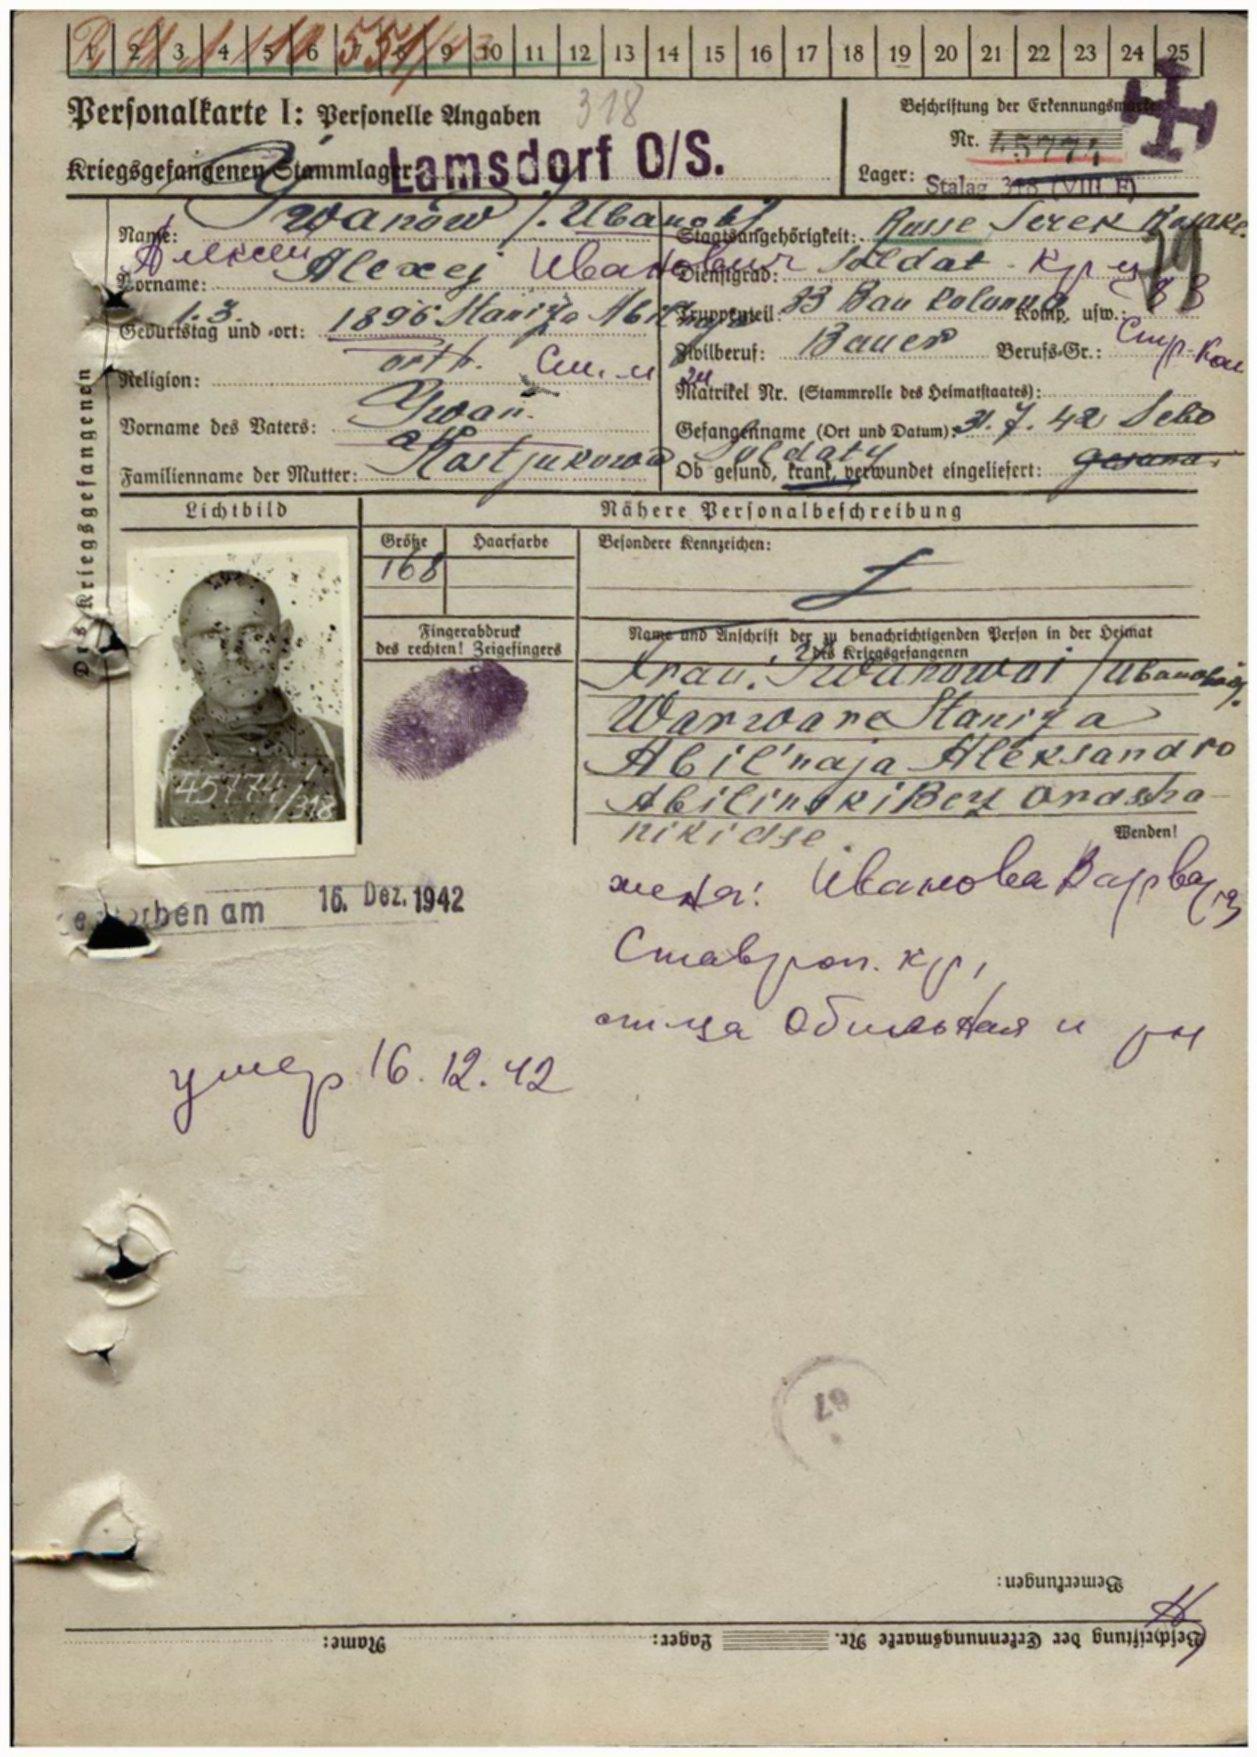 1 2 3 4 5 6 7 8 9 10 11 12 13 14 15 16 17 18 19 20 21 22 23 24 25
Personalkarte I: Personelle Angaben 318
Kriegsgefangenen-Stammlager: Lamsdorf O/S.
Beschriftung der Erkennungsmarke
Nr. 45774
Lager: Stalag 318 (VIII F)
Des Kriegsgefangenen
Name: Iwanow / Иванов
Vorname: Алексей Alexej Иванович
Geburtstag und -ort: 1.3. 1896 Staniza
orth. Ст.
Religion:
Vorname des Vaters: Iwan
Familienname der Mutter: Kostjukowa
Staatsangehörigkeit: Russe Terek
Dienstgrad: Soldat
Truppenteil: 33 Bau Kolonna Komp. usw.: 33
Zivilberuf: Bauer Berufs-Gr.:
Matrikel Nr. (Stammrolle des Heimatstaates):
Gefangennahme (Ort und Datum): 31.7.42 Selo
Soldaty
Ob gesund, krank, verwundet eingeliefert: gesund.
Lichtbild
Nähere Personalbeschreibung
Größe Haarfarbe Besondere Kennzeichen:
168
Fingerabdruck
des rechten! Zeigefingers
Name und Anschrift der zu benachrichtigenden Person in der Heimat
des Kriegsgefangenen
Frau: Iwanowoi /Ивановой/
Warware Staniza
Abil'naja Aleksandro
Abilinski Bez Ordsho-
nikidse.
Wenden!
45774/318
Gestorben am 16. Dez. 1942
жена: Иванова Варвара
Ставроп. кр,
ст-ца Обильная и рн
умер 16.12.42
67
Bemerkungen:
Beschriftung der Erkennungsmarke Nr. Lager: Name: